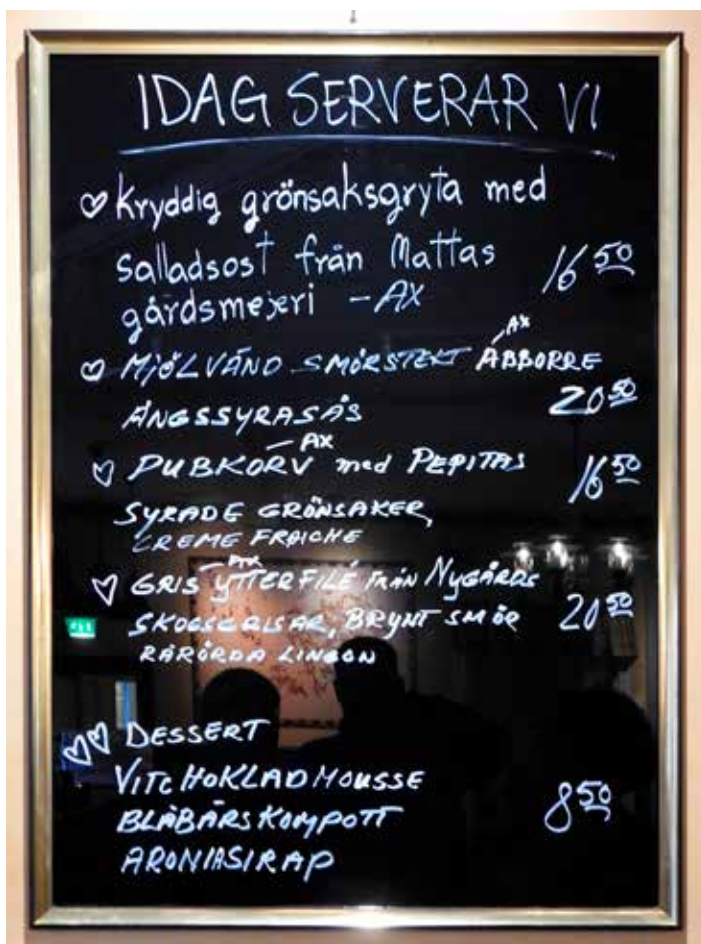 IDAG SERVERAR VI
Kryddig grönsaksgryta med
Salladsost från Mattas
gårdsmejeri - AX
16 50
AX
MJÖLVÄND SMÖRSTEKT ABBORRE
ÄNGSSYRASÅS
20 50
AX
PUBKORV med PEPITAS
16 50
SYRADE GRÖNSAKER,
CREME FRAICHE
AX
GRIS YTTERFILÉ FRÅN NYGÅRDS
SKOGSGRISAR, BRYNT SMÖR
20 50
RÅRÖRDA LINGON
DESSERT
VITCHOKLADMOUSSE
BLÅBÄRSKOMPOTT
8 50
ARONIASIRAP